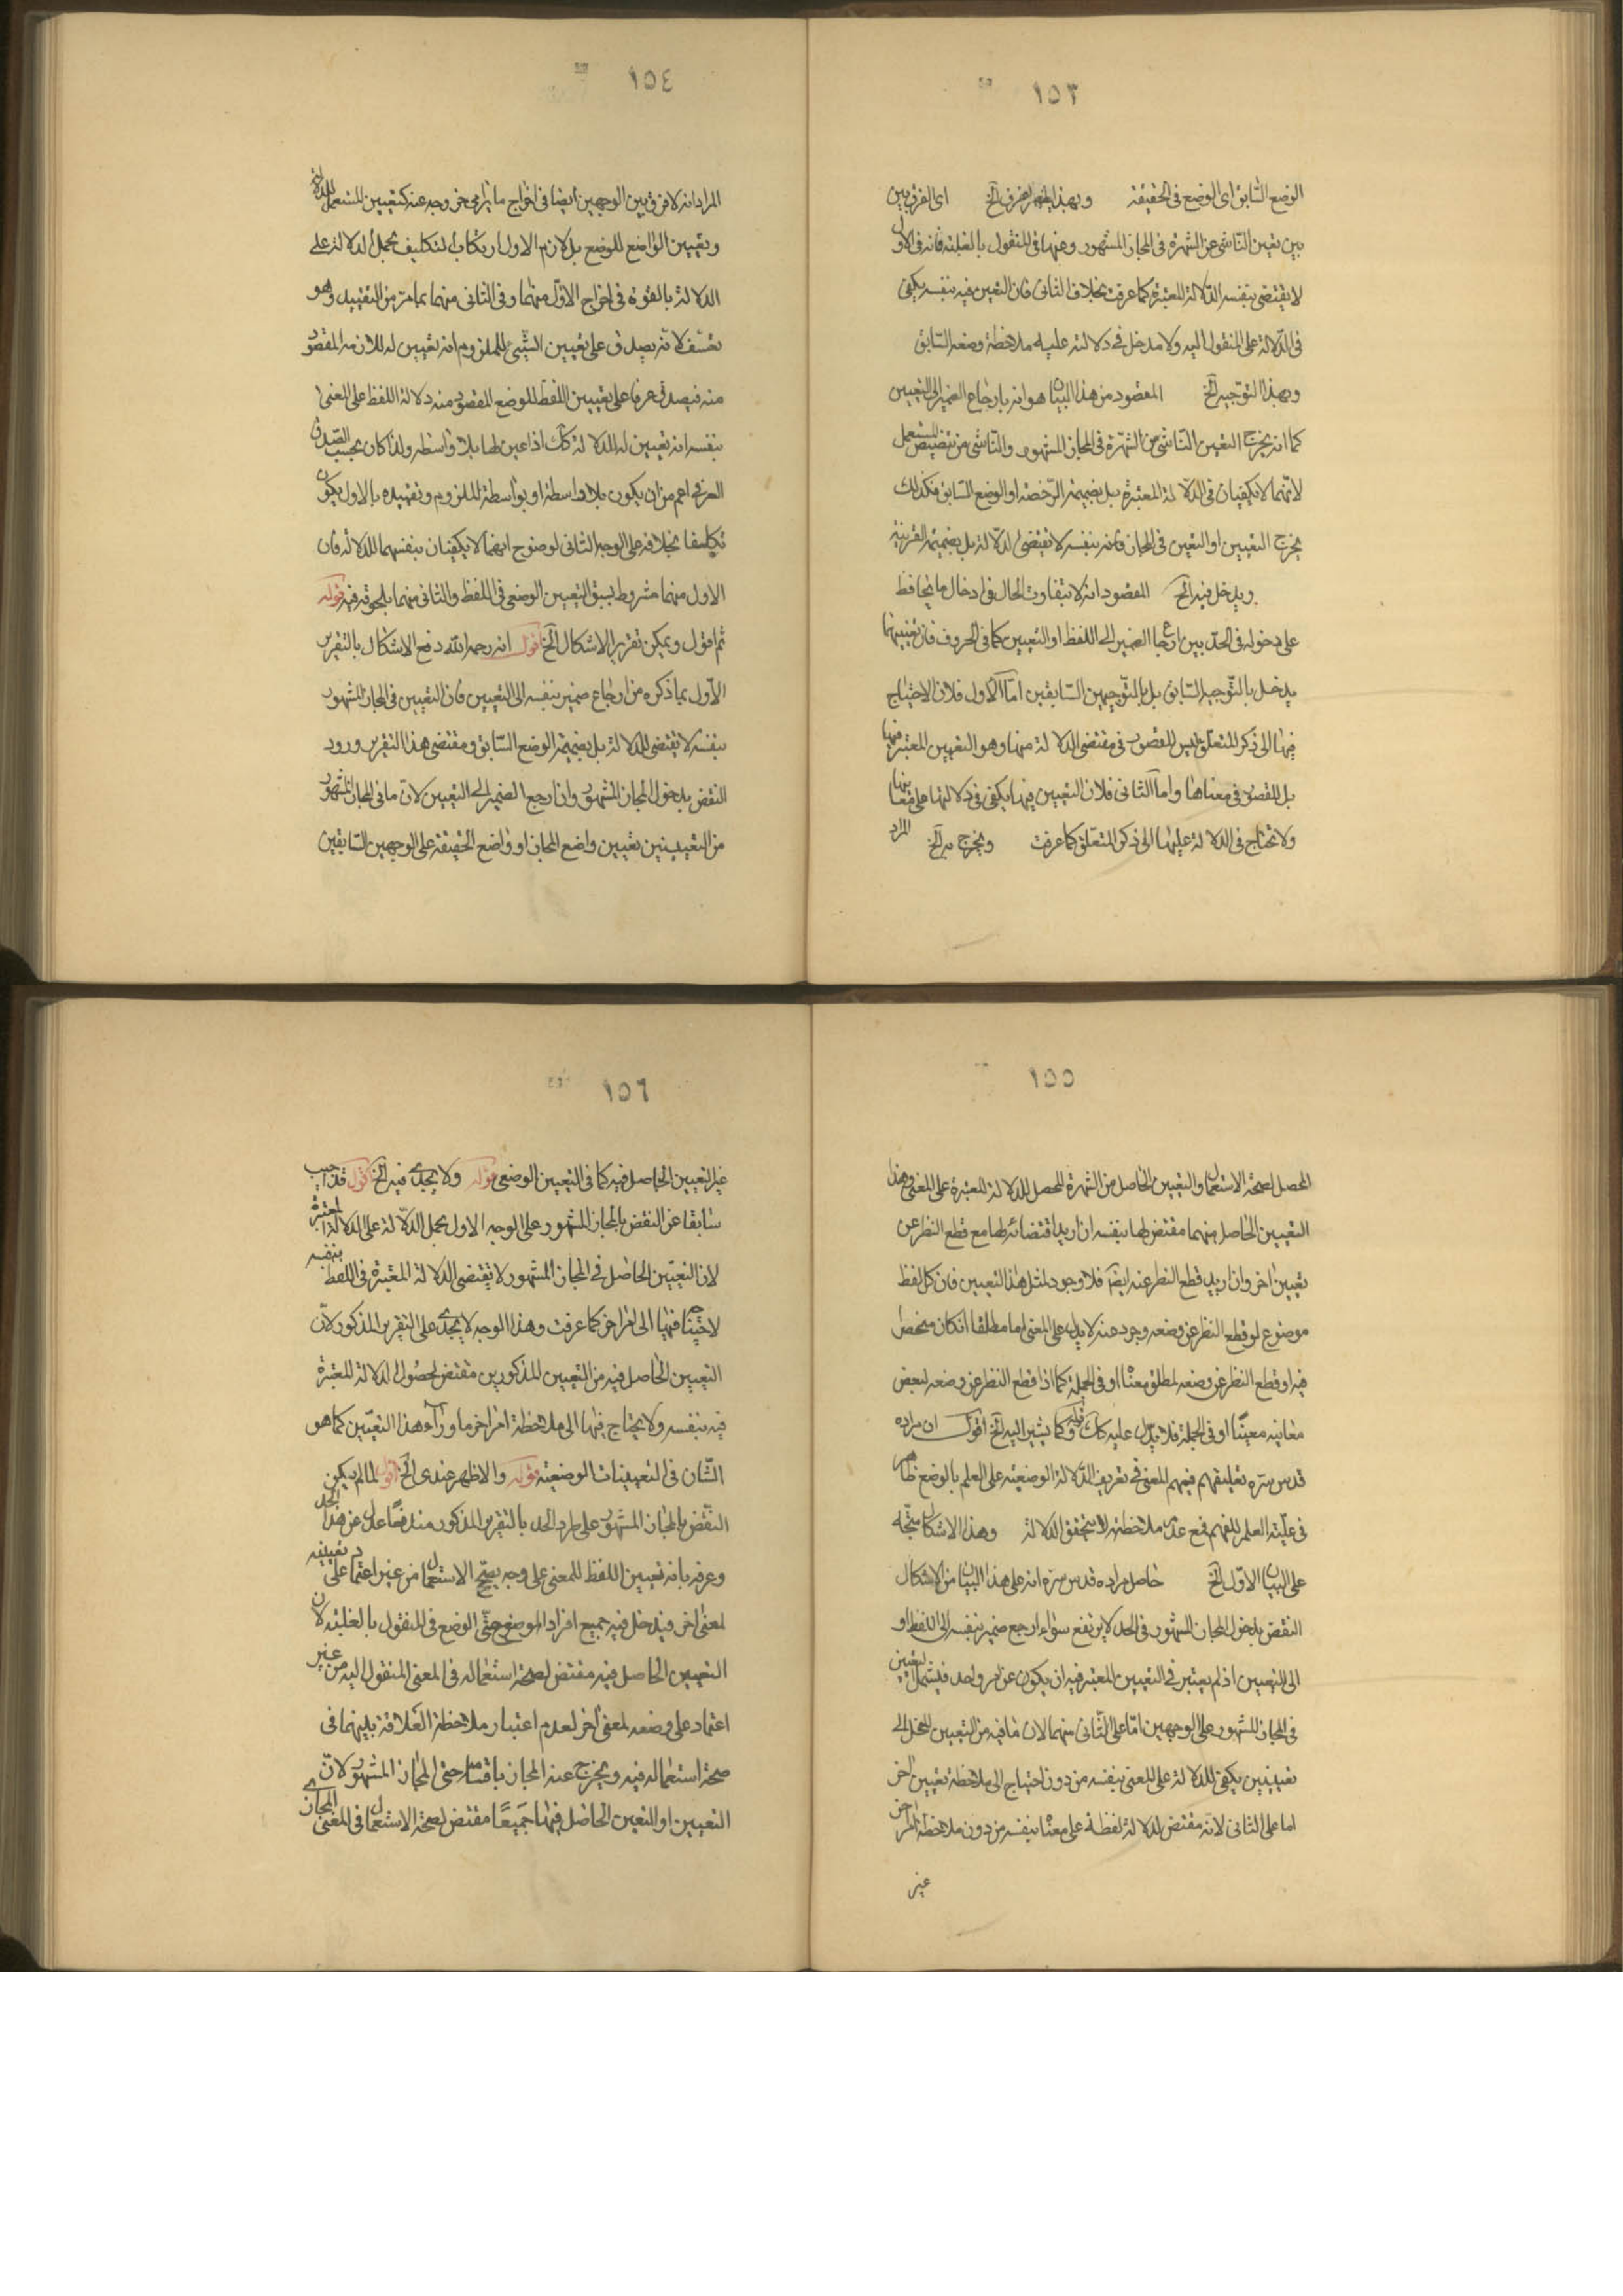 ١٥٣
الوضع السابق اى الوضع فى الحقيقة وبهذا يظهر الفرق الخ اى الفرق بين
بين تعين الناشى عن الشهرة فى المجاز المشهور وعنها فى المنقول بالغلبة فانه فى الاول
لا يقتضى بنفسه الدلالة المعتبرة كما عرفت بخلاف الثانى فان التعين فيه بنفسه يكفى
فى الدلالة على المنقول اليه ولا مدخل فى دلالته عليه ملاحظة وضعه السابق
وبهذا التوجيه الخ المقصود من هذا البيان هو انه بارجاع الضمير الى التعيين
كما انه يخرج التعين الناشى من الشهرة فى المجاز المشهور والناشى من تنصيص المستعمل
لانهما لا يكفيان فى الدلالة المعتبرة بل بضميمة الرخصة او الوضع السابق فكذلك
يخرج التعيين او التعين فى المجاز فانه بنفسه لا يقتضى الدلالة بل بضميمة القرينة
ويدخل فيه الخ المقصود انه لا يتفاوت الحال فى ادخال ما يحافظ
على دخوله فى الحد بين ارجاع الضمير الى اللفظ او التعيين كما فى الحروف فان تعيينها
يدخل بالتوجيه السابق بل بالتوجيهين السابقين اما الاول فلان الاحتياج
فيها الى ذكر المتعلق ليس للقصور فى مقتضى الدلالة منها وهو التعيين المعتبر فيها
بل للقصور فى معناها واما الثانى فلان التعيين فيها يكفى فى دلالتها على معانيها
ولا تحتاج فى الدلالة عليها الى ذكر المتعلق كما عرفت ويخرج به الخ
المراد
١٥٤
المراد انه لا فرق بين الوجهين ايضا فى اخراج ما يراعى خروجه عنه كتعيين المستعمل للدلالة
وتعيين الواضع للوضع بل لازم الاول ارتكاب التكليف بحمل الدلالة على
الدلالة بالقوة فى اخراج الاول منهما وفى الثانى منهما بما مر من التقييد وهو
تعسف لانه يصدق على تعيين الشيئ للملزوم انه تعيين له للازمه المقصود
منه فيصدق عرفا على تعيين اللفظ للوضع المقصود منه دلالة اللفظ على المعنى
بنفسه انه تعيين له للدلالة كك اذا عين لها بلا واسطة ولذا كان بحسب الصدق
العرفى اعم من ان يكون بلا واسطة او بواسطة للملزوم وتقييده بالاول يكون
تكليفا بخلافه على الوجه الثانى لوضوح انهما لا يكفيان بنفسهما للدلالة فان
الاول منهما مشروط بسبق التعيين الوضعى فى اللفظ والثانى منهما بلحوقه فيه قوله
ثم اقول ويمكن تقرير الاشكال الخ اقول انه رحمه الله دفع الاشكال بالتقرير
الاول بما ذكره من ارجاع ضمير بنفسه الى التعيين فان التعيين فى المجاز المشهور
بنفسه لا يقتضى للدلالة بل بضميمة الوضع السابق ومقتضى هذا التقرير ورود
النقض بدخول المجاز المشهور وان ارجع الضمير الى التعيين لان ما فى المجاز المشهور
من التعيينين تعيين واضع المجاز او واضع الحقيقة على الوجهين السابقين
١٥٥
المحصل لصحة الاستعمال والتعيين الحاصل من الشهرة المحصل للدلالة المعتبرة على المعنى وهذا
التعيين الحاصل منهما مقتض لها بنفسه ان اريد اقتضائه لها مع قطع النظر عن
تعيين اخر وان اريد قطع النظر عنه ايضا فلا وجود لمثل هذا التعيين فان كل لفظ
موضوع لو قطع النظر عن وضعه وجود عنه لا يدل على المعنى اما مطلقا ان كان منحصرا
فيه او قطع النظر عن وضعه لمطلق معناه او فى الجملة كما اذا قطع النظر عن وضعه لبعض
معانيه معينا او فى الجملة فلا يدل عليه كك قوله وكما يشير اليه الخ اقول ان مراده
قدس سره تعليقهم فهم المعنى فى تعريف الدلالة الوضعية على العلم بالوضع ظاهر
فى علية العلم للفهم فمع عدم ملاحظته لا يتحقق الدلالة وهذا الاشكال متجه
على البيان الاول الخ حاصل مراده قدس سره انه على هذا البيان من الاشكال
النقض بدخول المجاز المشهور فى الحد لا يرتفع سواء ارجع ضمير بنفسه الى اللفظ او
الى التعيين اذ لم يعتبر فى التعيين المعتبر فيه ان يكون عن امر واحد فيشمل التعيين
فى المجاز المشهور على الوجهين اما على الثانى منهما لان ما فيه من التعيين المنحل الى
تعيينين يكفى للدلالة على المعنى بنفسه من دون احتياج الى ملاحظة تعيين اخر
اما على الثانى لانه مقتض لدلالة لفظه على معناه بنفسه من دون ملاحظة امر اخر
غير
١٥٦
غير التعيين الحاصل فيه كما فى التعيين الوضعى قوله ولا يجدى فيه الخ اقول قد اجيب
سابقا عن النقض بالمجاز المشهور على الوجه الاول بحمل الدلالة على الدلالة المعتبرة
لان التعيين الحاصل فى المجاز المشهور لا يقتضى الدلالة المعتبرة فى اللفظ بنفسه
لاحتياجه فيها الى امر اخر كما عرفت وهذا الوجه لا يجدى على التقرير المذكور لان
التعيين الحاصل فيه من التعيين المذكورين مقتض لحصول الدلالة المعتبرة
فيه بنفسه ولا يحتاج فيها الى ملاحظة امر اخر ما وراء هذا التعيين كما هو
الشان فى التعيينات الوضعية قوله والاظهر عندى الخ اقول لما لم يكن
النقض بالمجاز المشهور على طرد الحد بالتقرير المذكور مندفعا عدل عن هذا الحد
وعرفه بانه تعيين اللفظ للمعنى على وجه يصح الاستعمال من غير اعتماد على تعيينه
لمعنى اخر فيدخل فيه جميع افراد الموضوع حتى الوضع فى المنقول بالغلبة لان
التعيين الحاصل فيه مقتض لصحة استعماله فى المعنى المنقول اليه من غير
اعتماد على وضعه لمعنى اخر لعدم اعتبار ملاحظة العلاقة بينهما فى
صحة استعماله فيه ويخرج عنه المجاز باقسامه حتى المجاز المشهور لان
التعيين او التعين الحاصل فيها جميعا مقتض لصحة الاستعمال فى المعنى المجازى